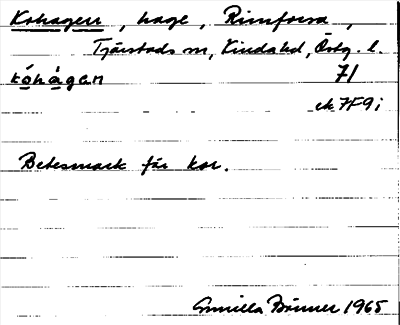 Kohagen, hage, Rimforsa,
Tjärstads sn, Kinda hd, Östg. l.
kóhàgan 71
ek 7F9i
Betesmark för kor.
Gunilla Bonner 1965